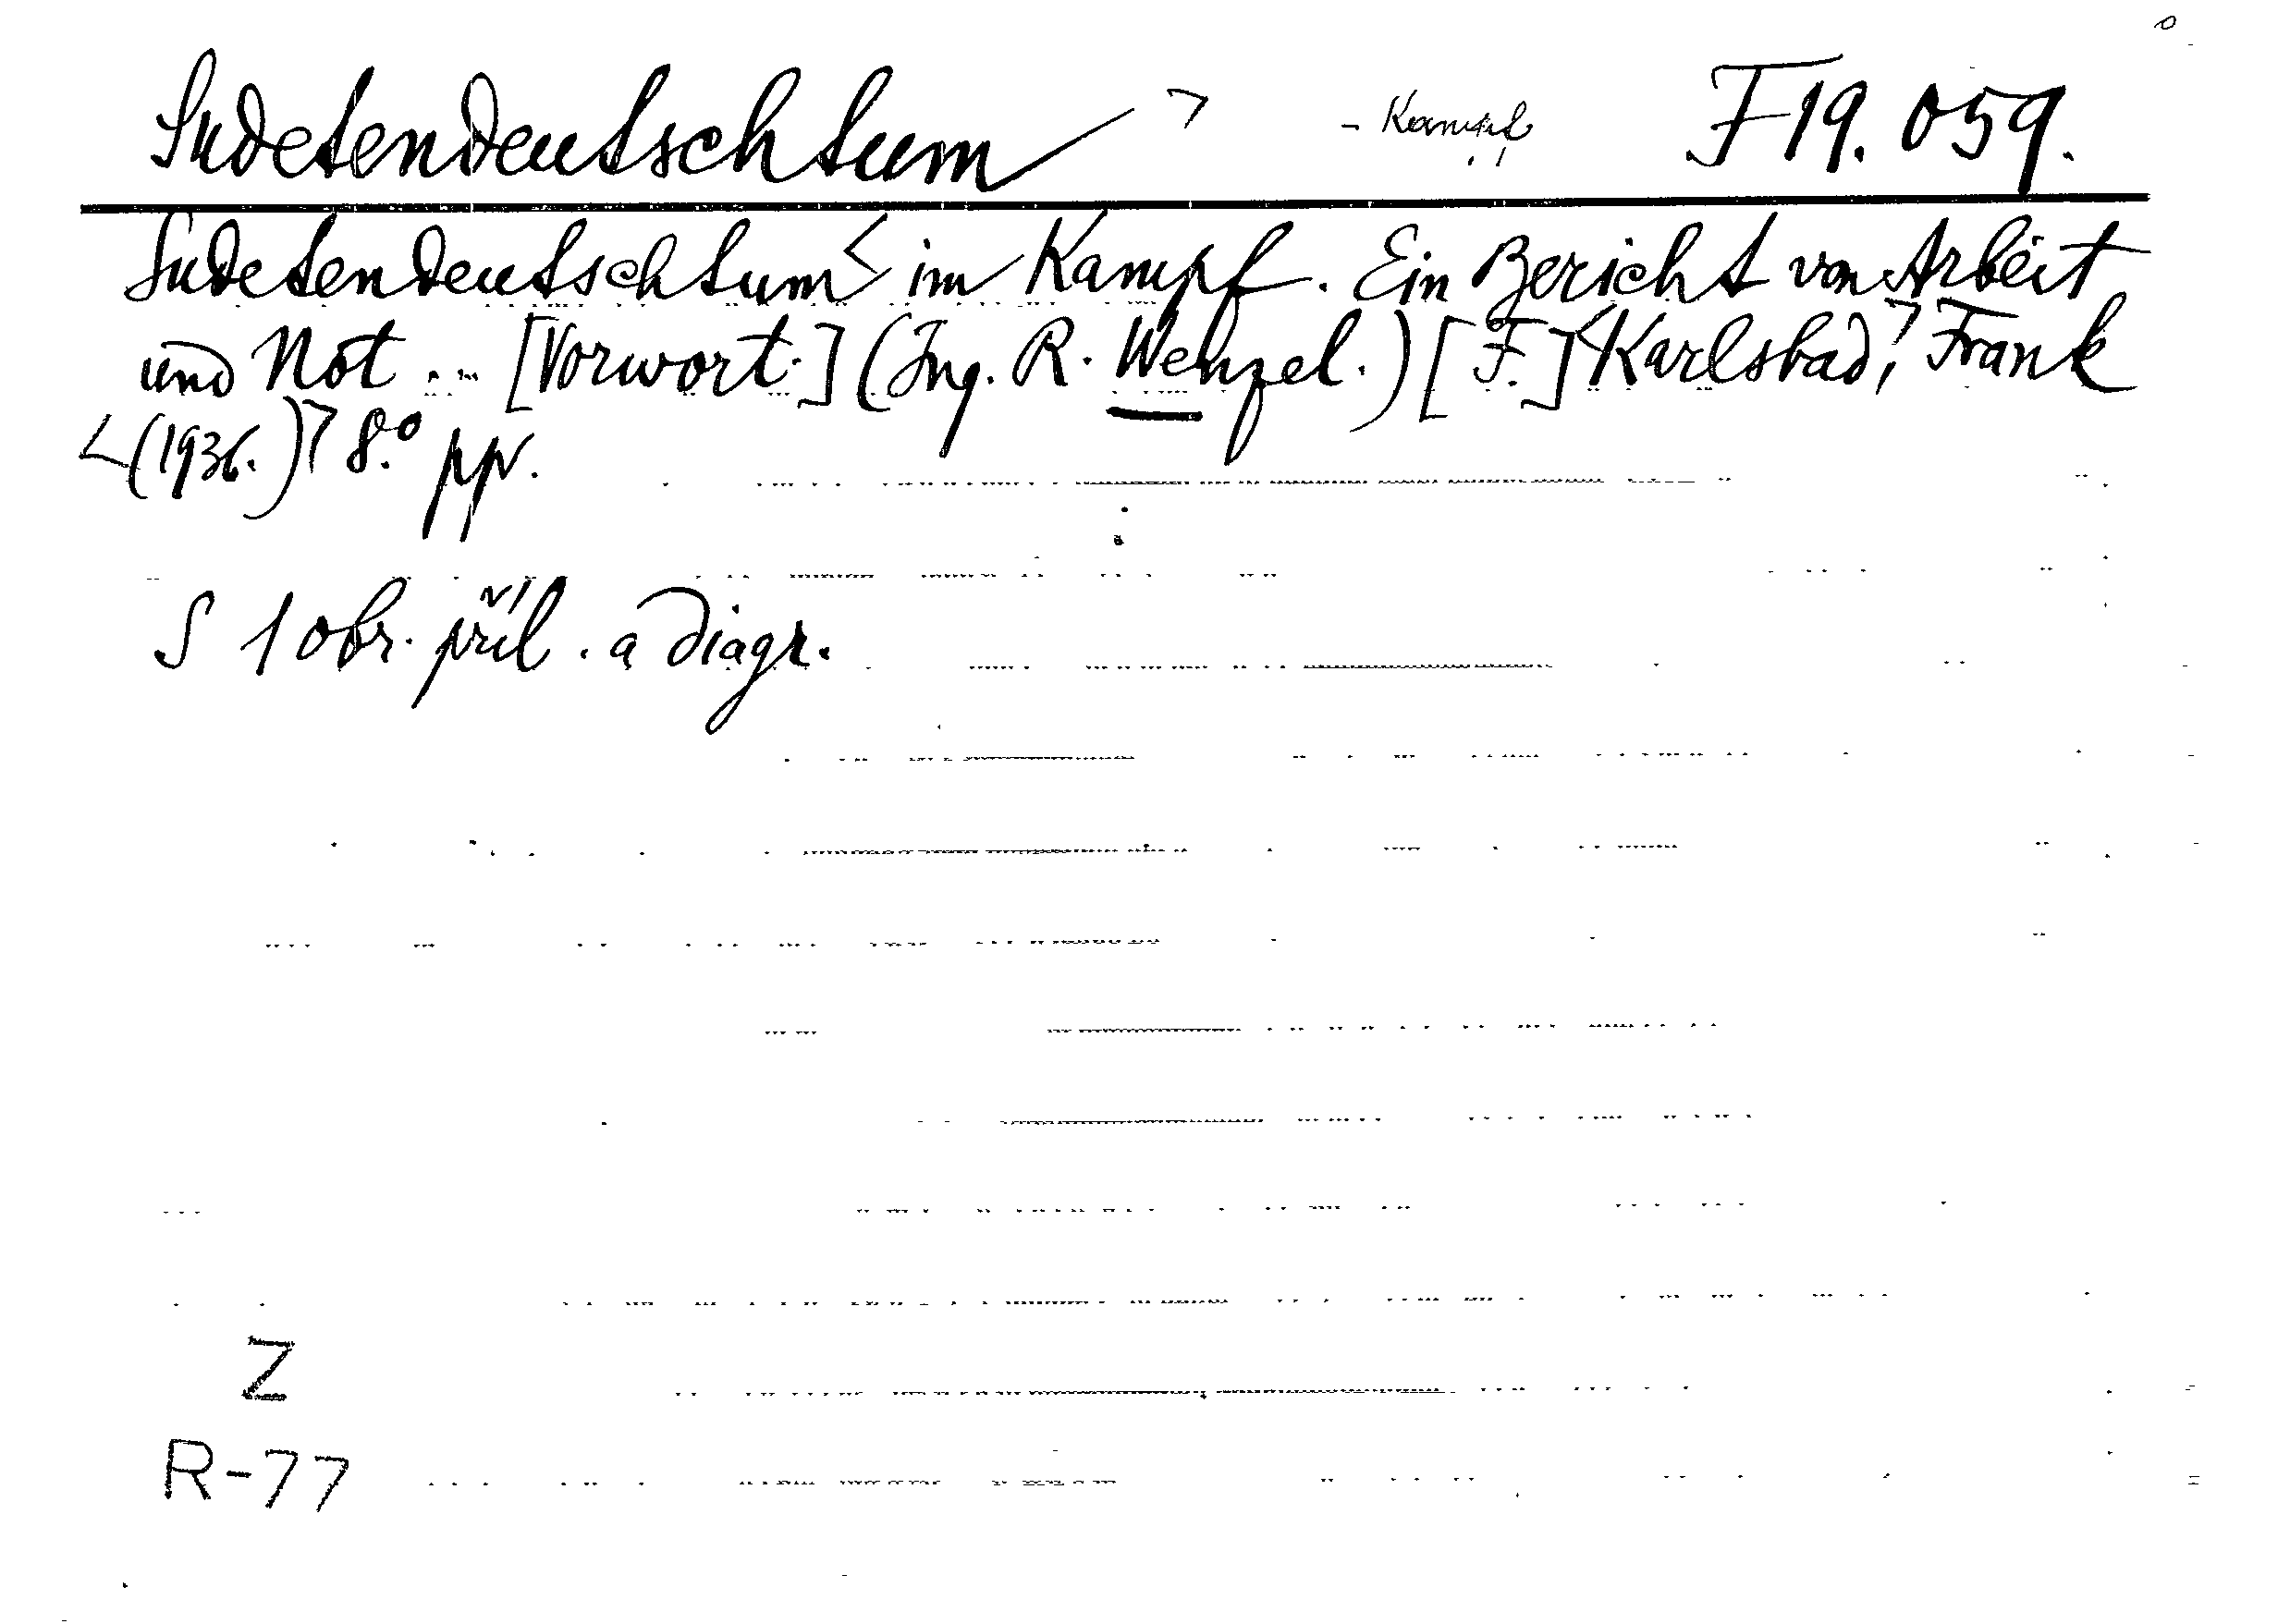 Sudetendeutschtum ㄱ - Kampf F 19.059.
Sudetendeutschtum < im Kampf. Ein Bericht von Arbeit
und Not ... [Vorwort.] (Ing. R. Wenzel.) [F.] <Karlsbad,ㄱ Frank
<(1936.)ㄱ 8.° pp.
S 1 obr. příl. a diagr.
Z
R-77